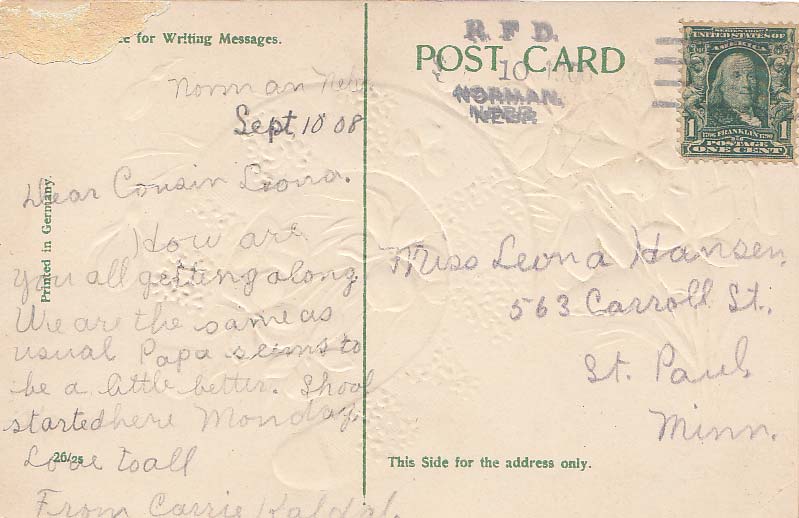 e for Writing Messages.
Norman Nebr.
Sept 10 08
Dear Cousin Leona.
How are
you all getting along.
We are the same as
usual Papa seems to
be a little better. Shool
started here Monday.
Love to all
From Carrie
Printed in Germany.
26/25
R. F. D.
POST CARD
10
NORMAN,
NEBR.
SERIES 1902
UNITED STATES OF
AMERICA
1 1706 FRANKLIN 1790 1
POSTAGE
ONE CENT
Miss Leona Hansen,
563 Carroll St.,
St. Paul
Minn.
This Side for the address only.